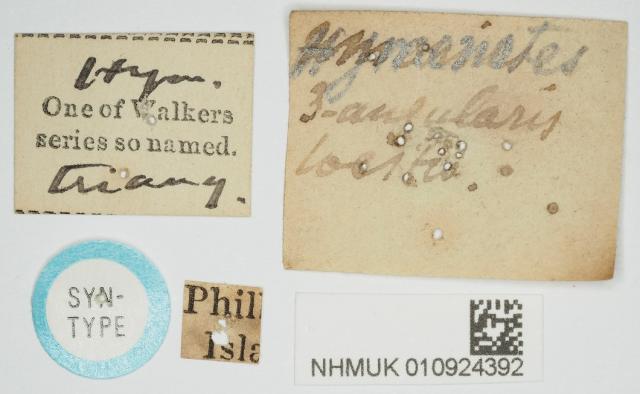 Hym.
One of Walkers
series so named.
triang.
Hymenotes
3-angularis
SYN-
TYPE
Phil
Isla
NHMUK 010924392